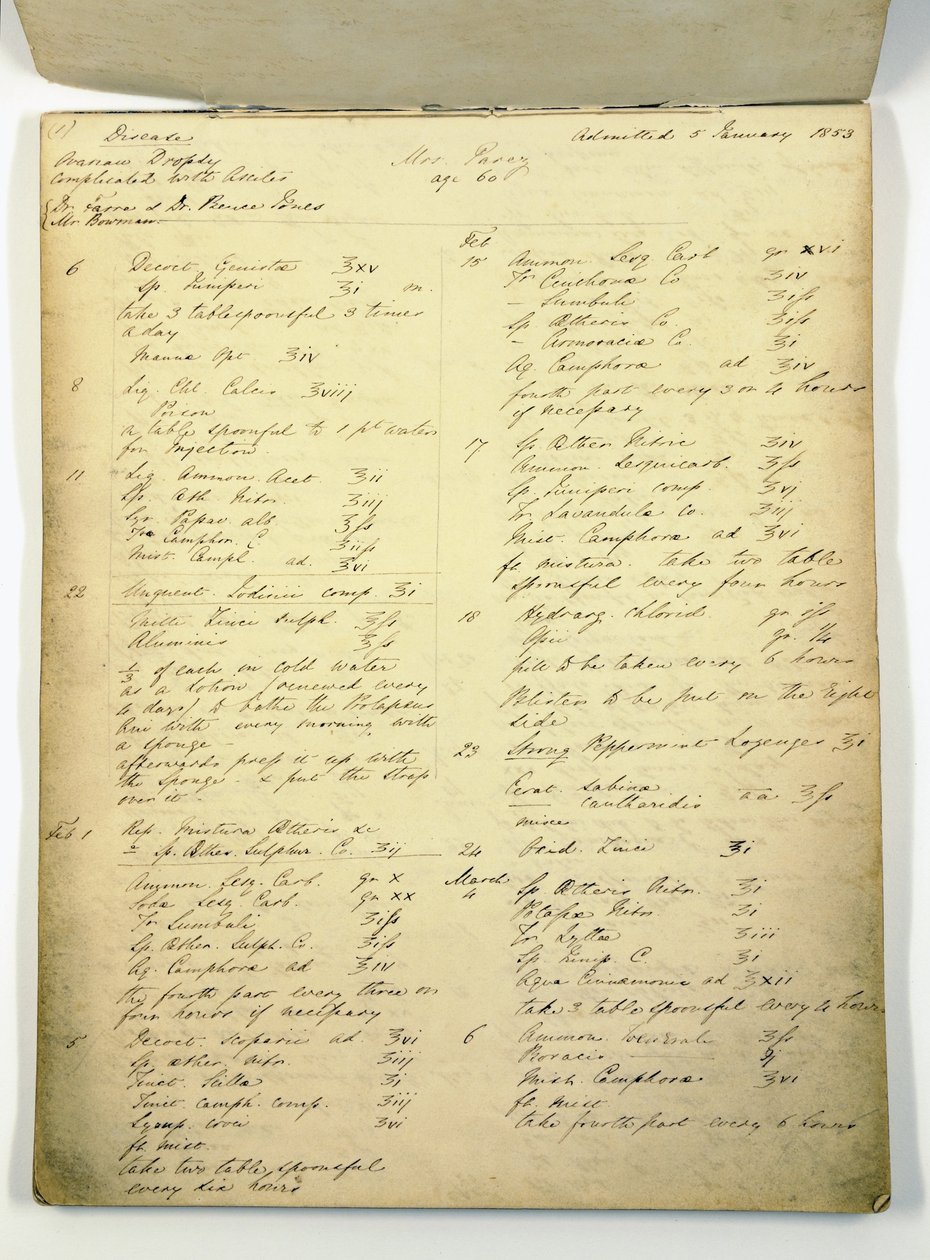 (1)
Disease
Admitted 5 January 1853
Ovarian Dropsy
Mrs. Parez
complicated with Ascites
age 60
Dr. Farre & Dr. Bence Jones
Mr. Bowman.
6 Decoct. Genistæ ℥xv
Sp. Juniperi ℥i m.
take 3 tablespoonsful 3 times
a day
Mannæ Opt ℥iv
8 Liq. Chl. Calcis ℥viij
Poison
a table spoonful to 1 pt water
for Injection.
11 Liq. Ammon. Acet ℥ii
Sp. Æth Nitr. ʒiij
Syr. Papav alb. ℥ss
Træ Camphor. C ʒiiss
Mist. Camph. ad. ℥vi
22 Unguent. Iodinii comp. ℥i
Zinci Sulph. ℥ss
Aluminis ℥ss
1/3 of each in cold water
as a lotion (renewed every
4 days) to bathe the Prolapsus
with every morning with
a sponge –
afterwards press it up with
the sponge. & put the strap
over it.
Feb 1 Rep. Mistura Ætheris &c
Sp. Æther. Sulphur. Co. ʒij
Ammon. Sesq. Carb. gr x
Sodæ Sesq. Carb. gr xx
Tr Sumbuli ʒiss
Sp. Æther. Sulph. Co. ʒiss
Aq. Camphoræ ad ℥iv
the fourth part every three or
four hours if necessary
5 Decoct. Scoparii ad. ℥vi
Sp. æther. nitr. ʒiij
Tinct. Scillæ ʒi
Tinct. camph. comp. ʒiij
Syrup. ʒvi
ft. mist.
take two table spoonsful
every six hours
Feb
15 Ammon. Sesq Carb gr xvi
Tr Cinchonæ Co ʒiv
– Sumbuli ʒiss
Sp. Ætheris Co. ʒiss
– Armoraciæ C. ℥i
Aq. Camphoræ ad ℥iv
fourth part every 3 or 4 hours
if necessary
17 Sp. Æther Nitric ʒiv
Ammon. Sesquicarb. ʒss
Sp. Juniperi comp. ʒvj
Tr Lavandulæ Co. ʒiij
Mist. Camphoræ ad ℥vi
ft mistura. take two table
spoonsful every four hours
18 Hydrarg. Chlorid. gr iss
Opii gr. 1/4
pill to be taken every 6 hours
Blisters to be put on the Right
side
23 Strong Peppermint Lozenges ℥i
Cerat. Sabinæ
— cantharidis aa ℥ss
misce
24 Oxid. Zinci ℥i
March
4 Sp. Ætheris Nitr. ℥i
Potassæ Nitr. ʒi
Tr. Lyttæ ʒiii
Sp. Junip. C. ℥i
Aqua Cinnamomi ad ℥xii
take 3 table spoonsful every 4 hours
6 Ammon. ʒss
Boracis — ℈j
Mist. Camphoræ ℥vi
ft. mist
take fourth part every 6 hours